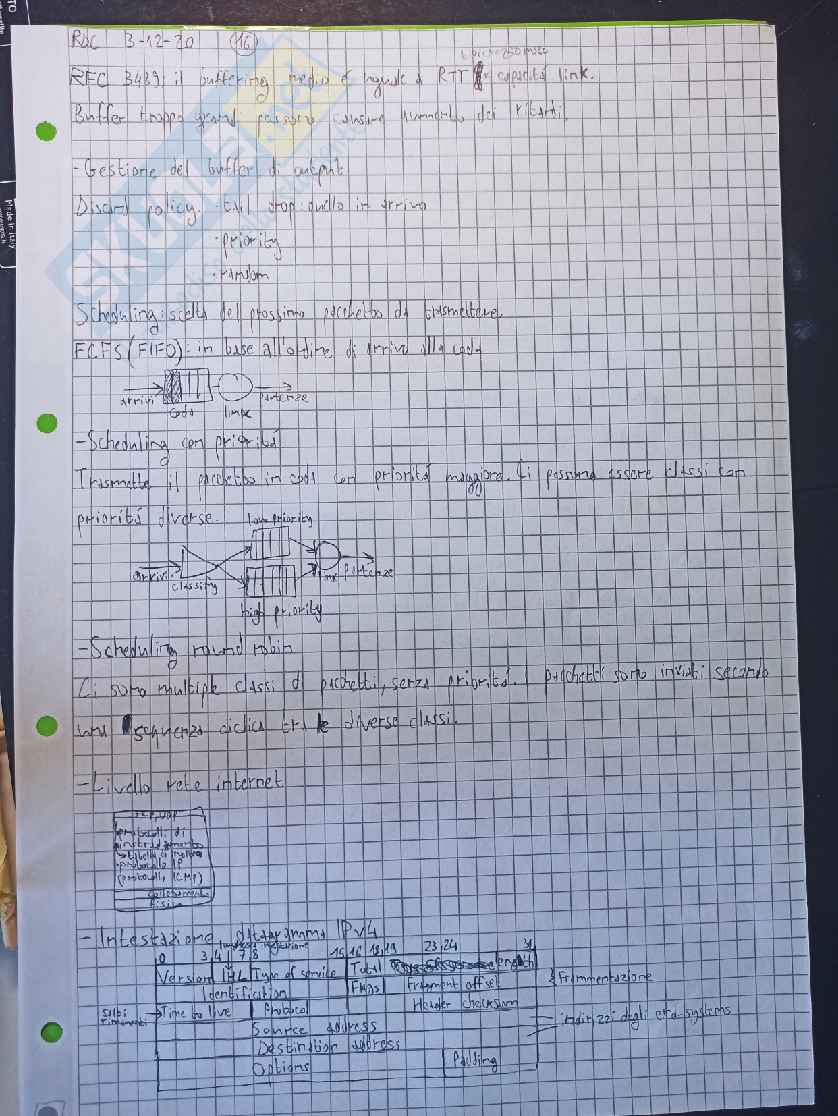 RdC 3-12-20 (16)
RFC 3439: il buffering medio è uguale a RTT capacità link.
Buffer troppo grandi possono causare aumento dei ritardi
- Gestione del buffer di output
Discard policy. · tail drop: quello in arrivo
· priority
· random
Scheduling: scelta del prossimo pacchetto da trasmettere.
FCFS (FIFO): in base all'ordine di arrivo alla coda
arrivi coda link partenze
- Scheduling con priorità
Trasmette il pacchetto in coda con priorità maggiore. Ci possono essere classi con
priorità diverse. low priority
arrivi classify link partenze
high priority
- Scheduling round robin
Ci sono multiple classi di pacchetti, senza priorità. I pacchetti sono inviati secondo
una sequenza ciclica tra le diverse classi.
- Livello rete internet
TCP, UDP
protocolli di
instradamento
tabella di inoltro
protocollo IP
protocollo ICMP
collegamento
fisico
- Intestazione datagramma IPv4
0 3,4 7,8 15,16 18,19 23,24 31
Version IHL Type of service Total length
Identification Flags Fragment offset Frammentazione
Salti rimanenti Time to live Protocol Header checksum
Source address indirizzi degli end systems
Destination address
Options Padding
SKUOLA.net